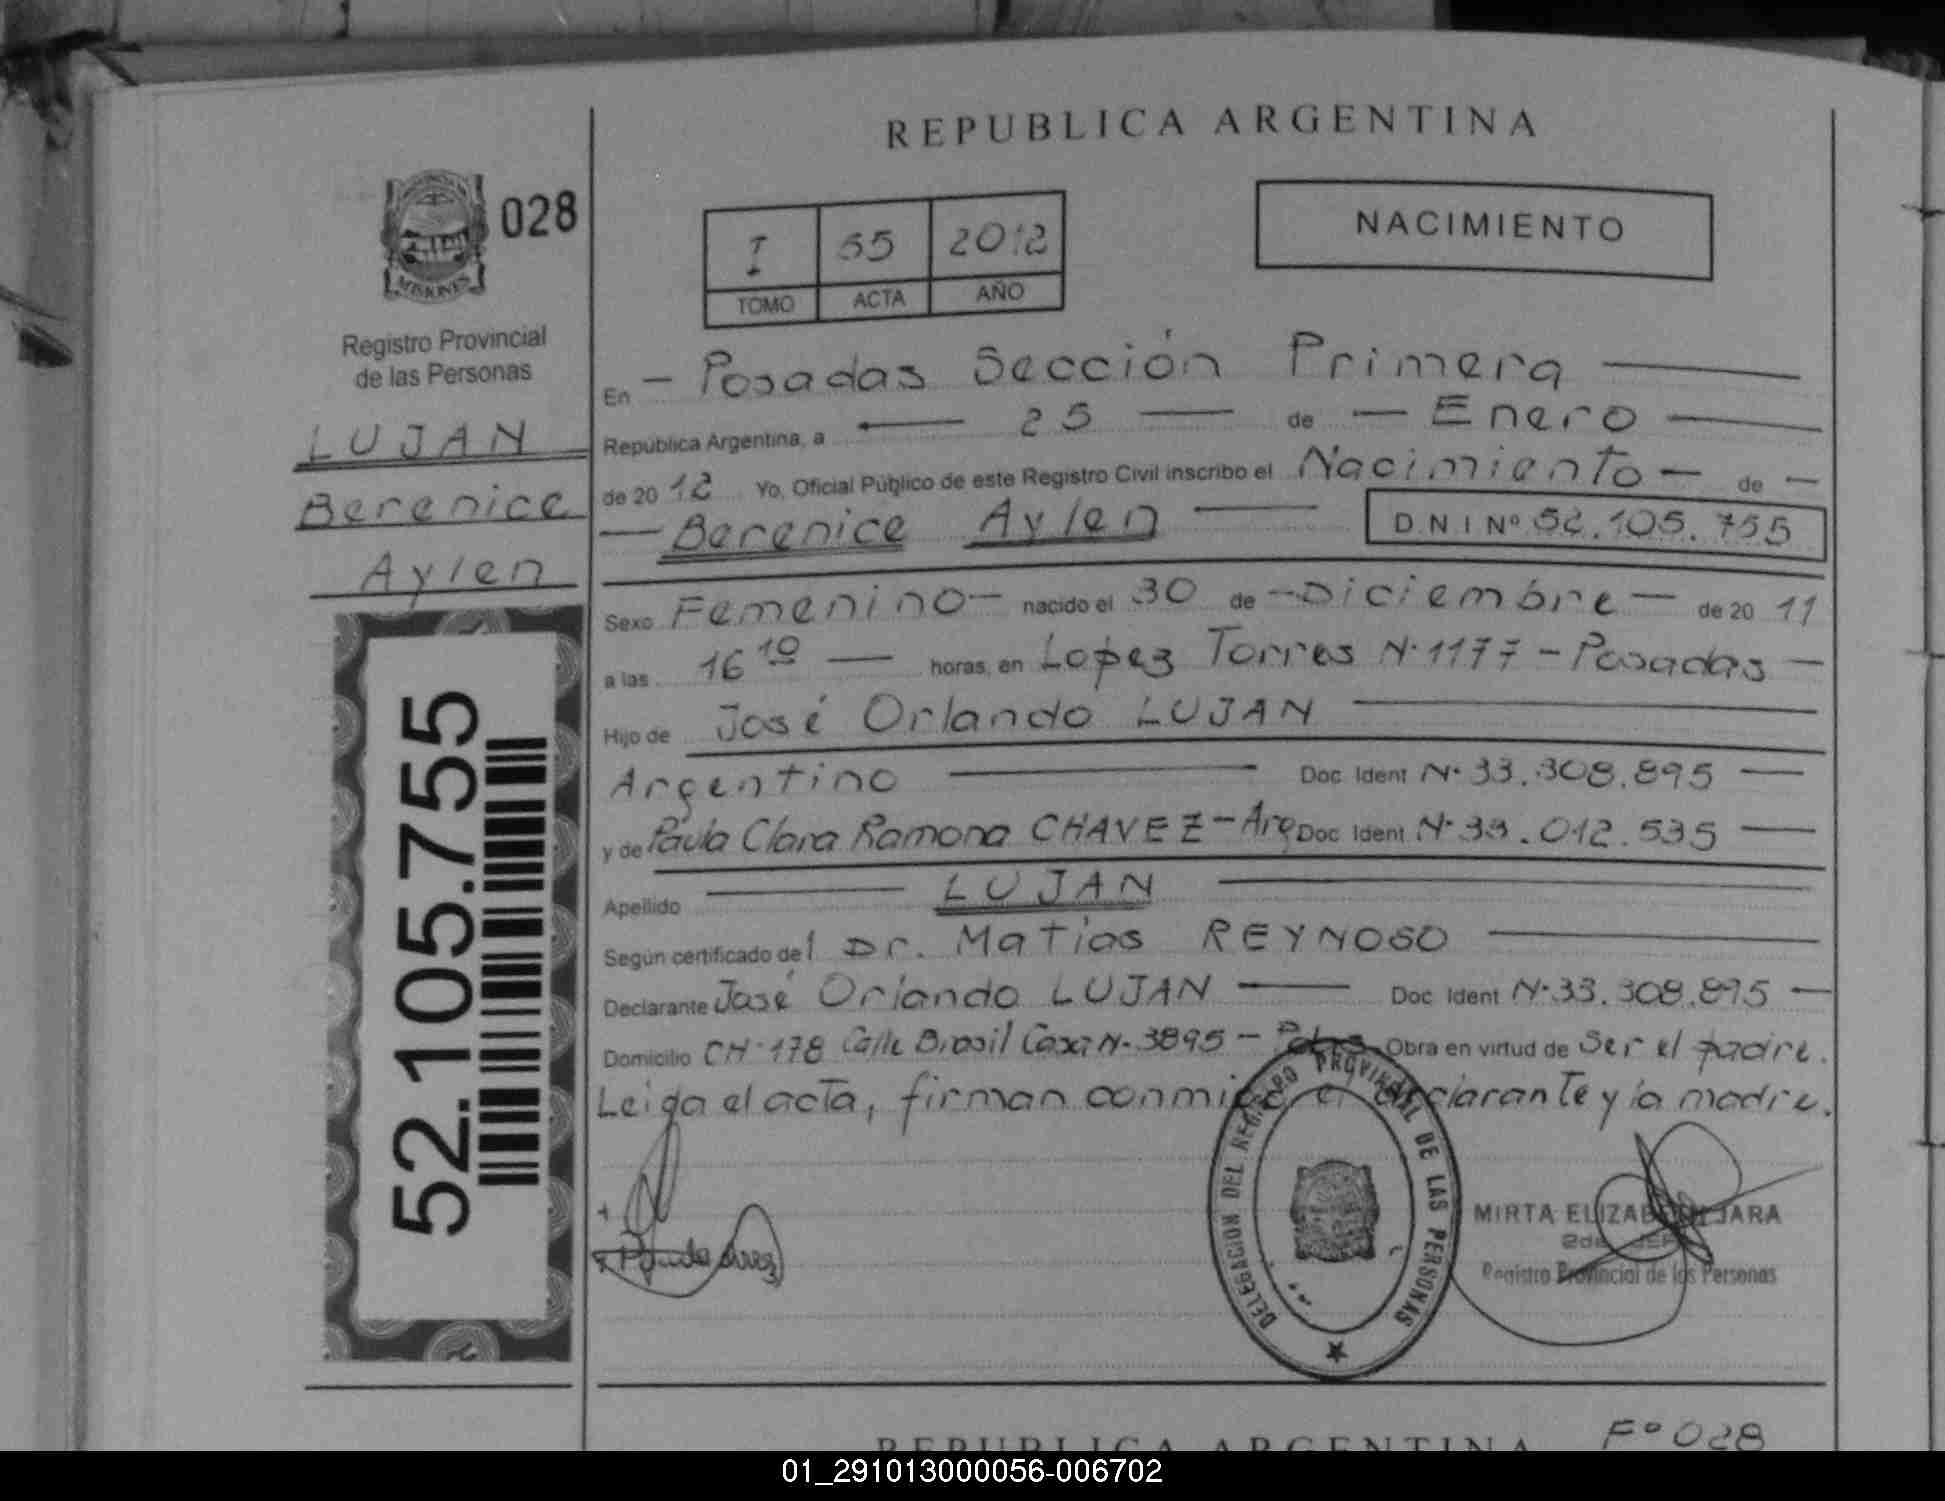 REPUBLICA ARGENTINA
MISIONES
028
Registro Provincial
de las Personas
LUJAN
Berenice
Aylen
52.105.755
I 55 2012
TOMO ACTA AÑO
NACIMIENTO
En - Posadas Sección Primera
República Argentina, a 25 de - Enero
de 2012 Yo, Oficial Público de este Registro Civil inscribo el Nacimiento - de -
- Berenice Aylen - D.N.I Nº 52.105.755
Sexo Femenino - nacido el 30 de - Diciembre - de 2011
a las 16 10 - horas, en Lopez Torres N·1177 - Posadas -
Hijo de José Orlando LUJAN
Argentino - Doc. Ident N·33.308.895 -
y de Paula Clara Ramona CHAVEZ - Arg Doc Ident N·33.012.535 -
Apellido LUJAN
Según certificado del Dr. Matias REYNOSO
Declarante José Orlando LUJAN - Doc Ident N·33.308.895 -
Domicilio CH·178 Calle Brasil Casa N·3895 - Pdas Obra en virtud de Ser el padre.
Leida el acta, firman conmigo el declarante y la madre.
DELEGACION DEL REGISTRO PROVINCIAL DE LAS PERSONAS
MIRTA ELIZABETH JARA
2da JEFE
Registro Provincial de las Personas
REPUBLICA ARGENTINA Fº 028
01_291013000056-006702